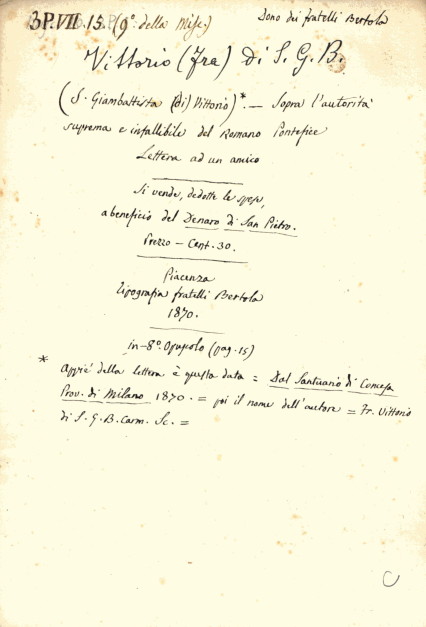 3P.VII.15. (9º della Misc.)
Dono dei fratelli Bertola
Vittorio (Fra) di S. G. B.
(S. Giambattista (di) Vittorio)*. — Sopra l'autorità
suprema e infallibile del Romano Pontefice
Lettera ad un amico
Si vende, dedotte le spese,
a beneficio del Denaro di San Pietro.
Prezzo – Cent. 30.
Piacenza
Tipografia fratelli Bertola
1870.
in-8º. Opuscolo (pag. 15)
* Appiè della lettera è questa data = Dal Santuario di
Prov. di Milano 1870. = poi il nome dell'autore = Fr. Vittorio
di S. G. B. Carm. Sc. =
C